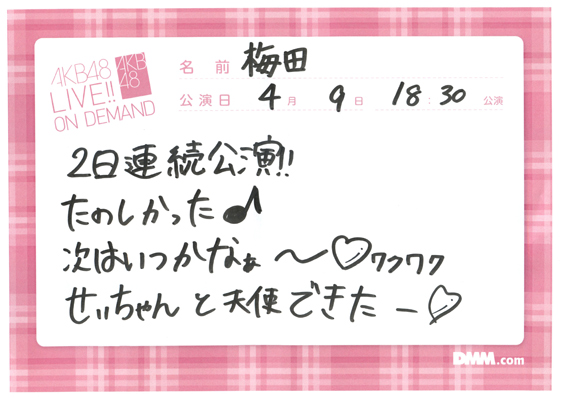 AKB48
LIVE!!
ON DEMAND
AKB
48
名前 梅田
公演日 4月 9日 18:30 公演
2日連続公演!!
たのしかった♪
次はいつかなぁ〜♡ワクワク
せぃちゃんと天使できたー♡
DMM.com